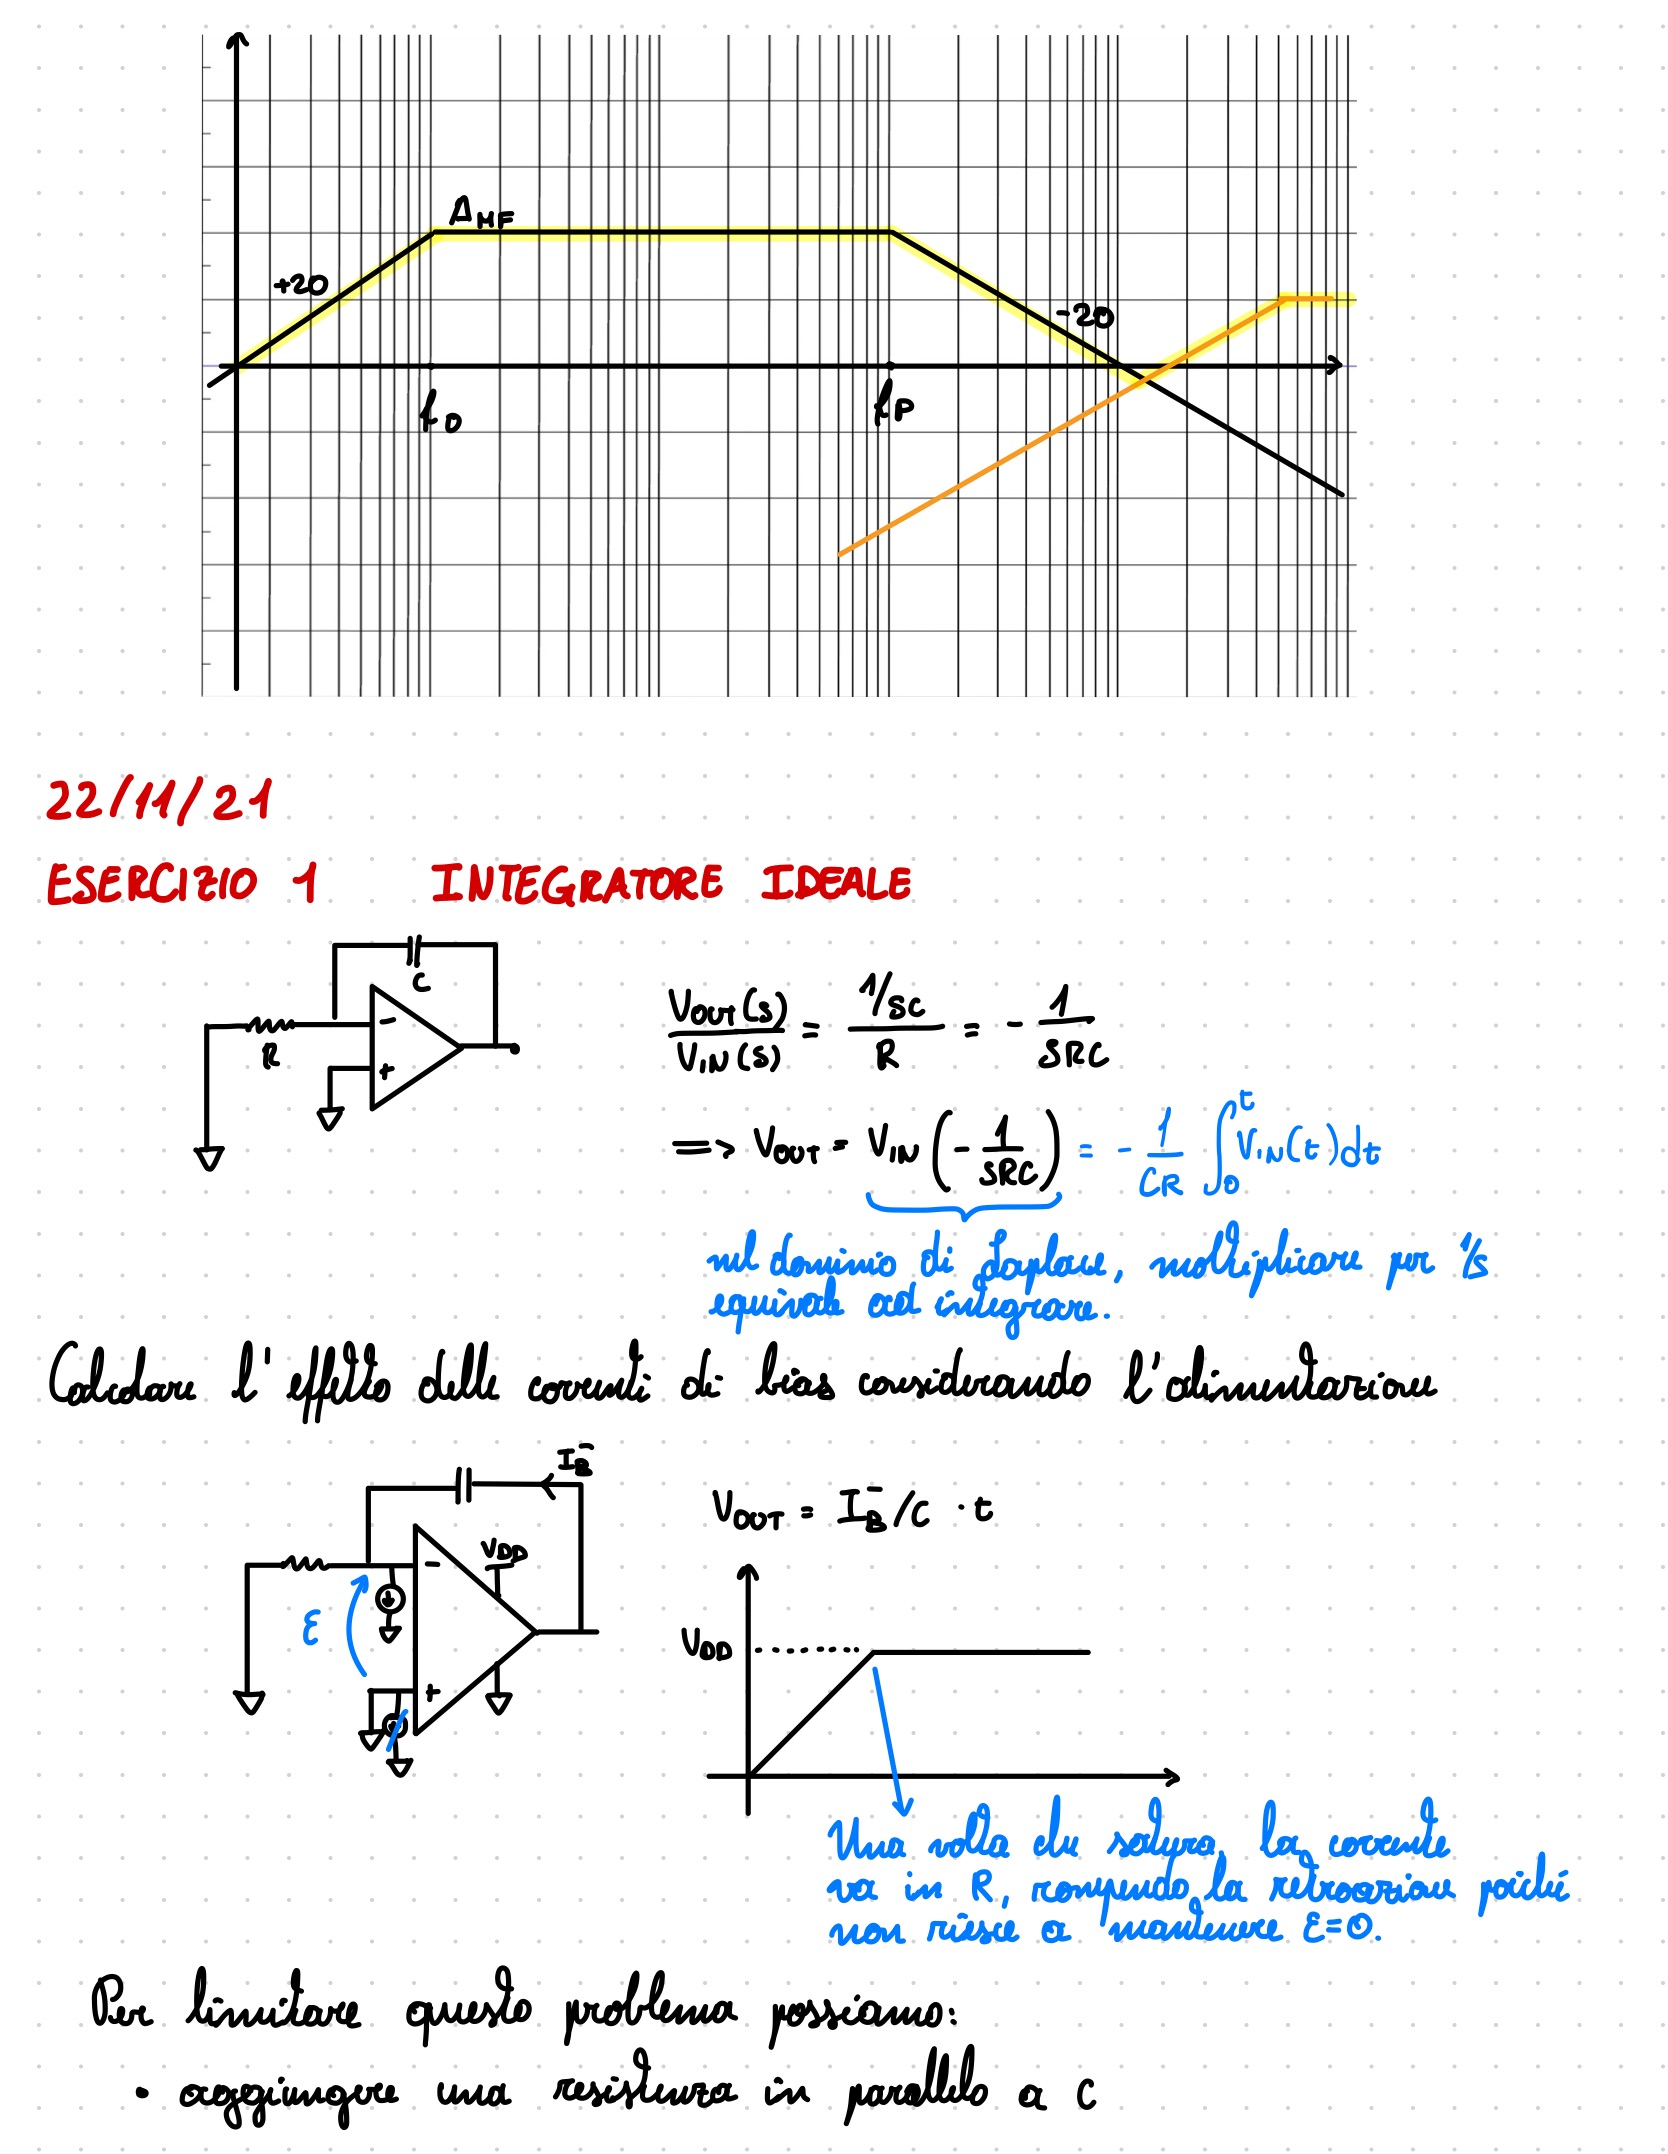 A_MF
+20
-20
f_0
f_P
22/11/21
ESERCIZIO 1 INTEGRATORE IDEALE
C
R
-
+
V_OUT(s)/V_IN(s) = (1/sC)/R = - 1/SRC
=> V_OUT = V_IN (- 1/SRC) = - 1/CR ∫_0^t V_IN(t)dt
nel dominio di Laplace, moltiplicare per 1/s
equivale ad integrare.
Calcolare l'effetto delle correnti di bias considerando l'alimentazione
I_B^-
V_OUT = I_B^-/C · t
V_DD
-
ε
+
V_DD
Una volta che satura, la corrente
va in R, rompendo la retroazione poiché
non riesce a mantenere ε=0.
Per limitare questo problema possiamo:
• aggiungere una resistenza in parallelo a C